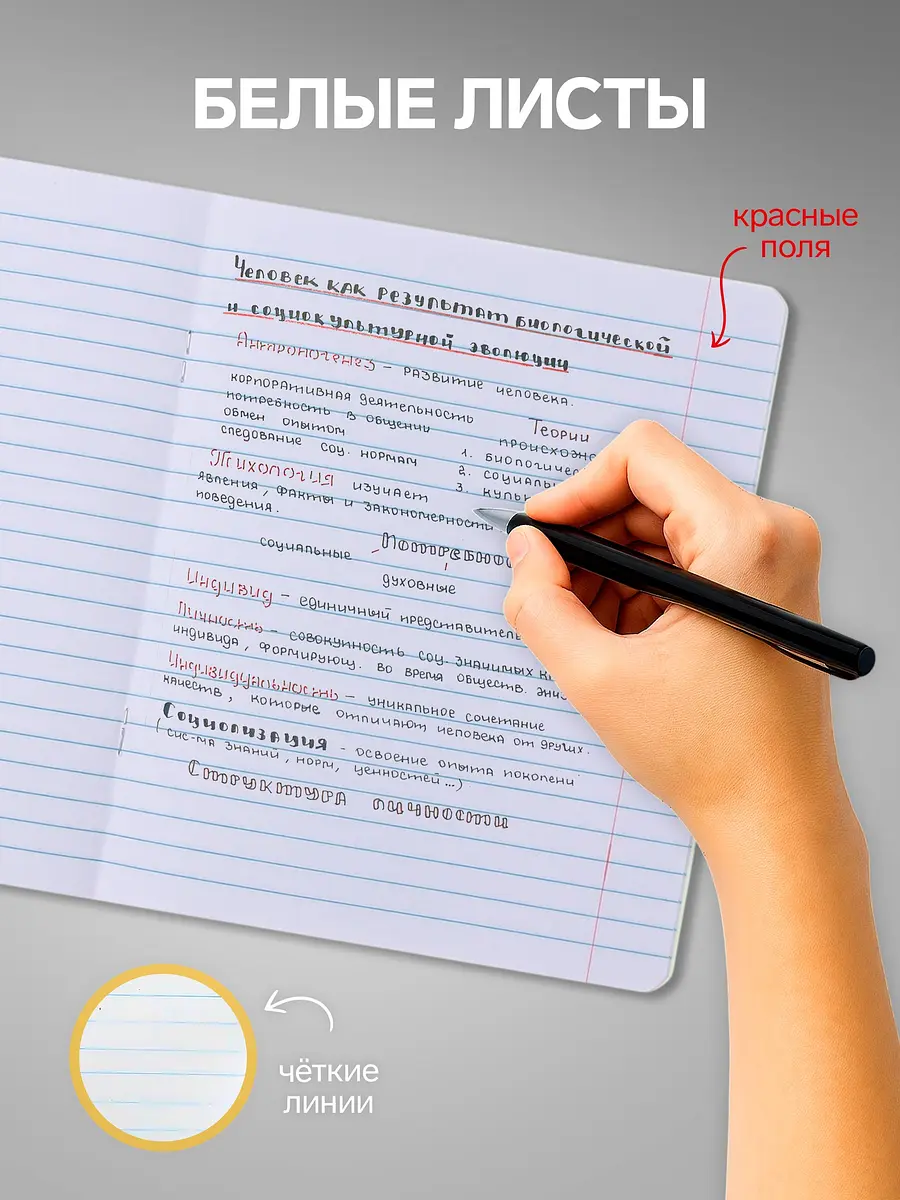 БЕЛЫЕ ЛИСТЫ
красные
поля
Человек как результат биологической
и социокультурной эволюции
Антропогенез – развитие человека.
корпоративная деятельность
потребность в общении
обмен опытом
следование соц. нормам
Теории
1. биологичес
2. социаль
3. куль
Психология изучает
явления, факты и закономерности
поведения.
Потребнос
социальные
духовные
Индивид – единичный представитель
Личность – совокупность соц. значимых
индивида, формирующ. во время обществ.
Индивидуальность – уникальное сочетание
качеств, которые отличают человека от других.
Социализация - освоение опыта поколени
(сис-ма знаний, норм, ценностей...)
Структура личности
чёткие
линии